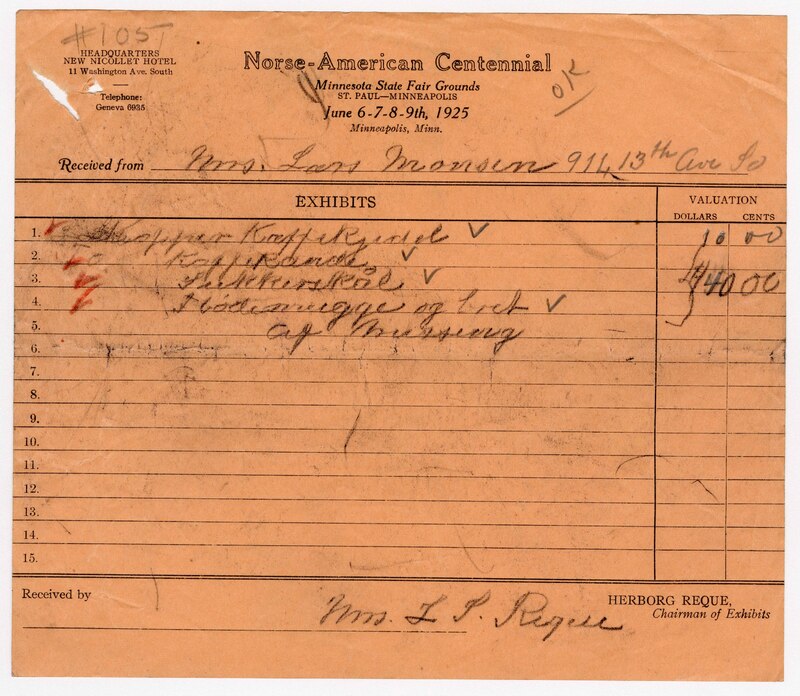 #1051
HEADQUARTERS
NEW NICOLLET HOTEL
11 Washington Ave. South
Telephone:
Geneva 6935
Norse-American Centennial
Minnesota State Fair Grounds
ST. PAUL—MINNEAPOLIS
June 6-7-8-9th, 1925
Minneapolis, Minn.
OK
Received from Mrs. Lars Monsen 911, 13th Ave So
EXHIBITS VALUATION
DOLLARS CENTS
1. Kopper Kaffekjedel ✓ 10 00
2. Kaffekande ✓
3. Sukkerskål ✓ 40 00
4. Flödemugge og bret ✓
5. af Messing
6.
7.
8.
9.
10.
11.
12.
13.
14.
15.
Received by
Mrs. L P. Reque
HERBORG REQUE,
Chairman of Exhibits